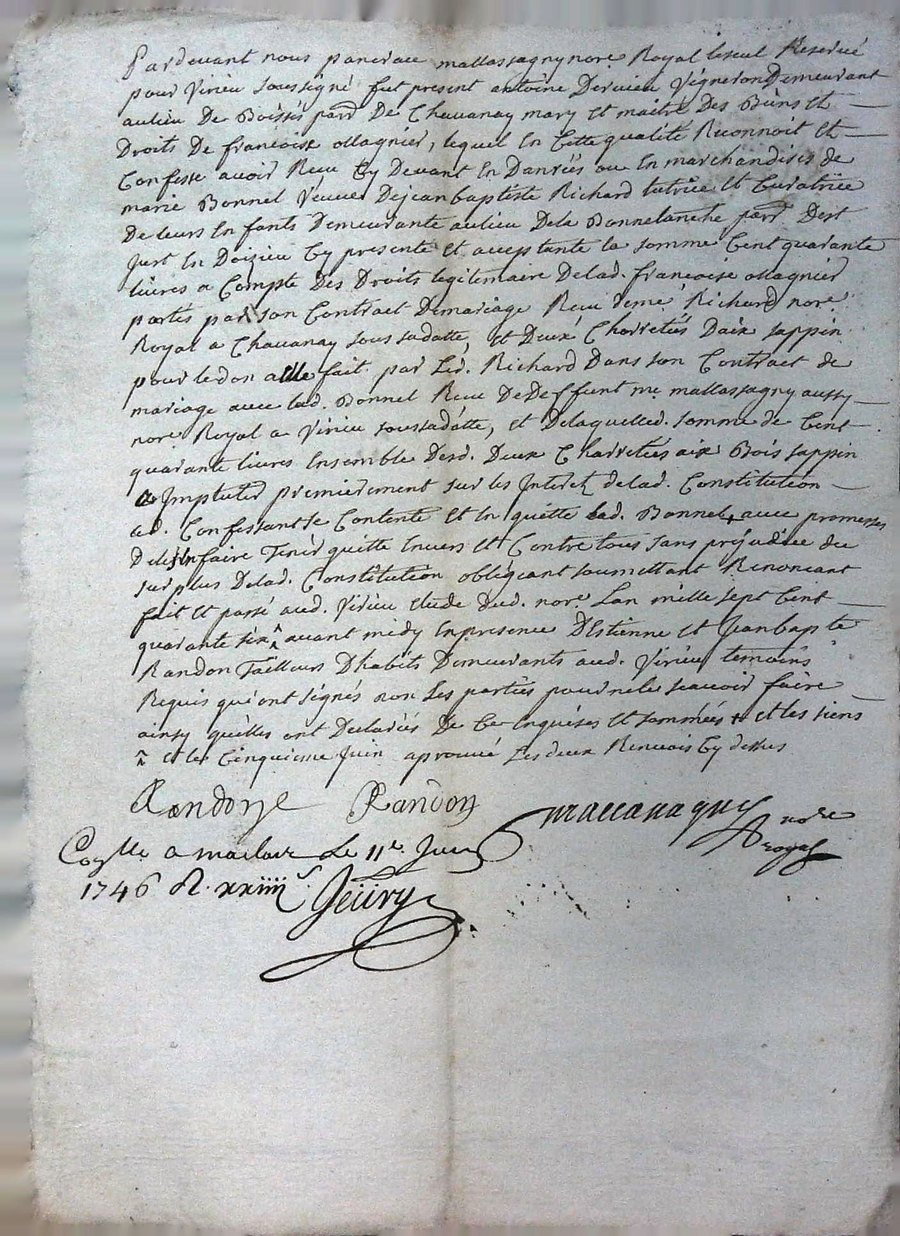 Pardevant nous pancrace mallassagny nore Royal leseul Reservé
pour Virieu soussigné fut present antoine Dervieu Vigneron Demeurant
aulieu De Boissés parr De Chavanay mary et maitre Des Biens et
Droits De françoise ollagnier, lequel en Cette qualité Reconnoit et
Confesse avoir Reçu Cy Devant en Danrées ou en marchandises de
marie Bonnel Veuve Dejeanbaptiste Richard tutrice et Curatrice
De leurs Enfants Demeurante aulieu Dela Bonnelanche parr Dest
Just en Doizieu Cy presente et acceptante la somme Cent quarante
livres a Compte Des Droits legitimaire Delad. françoise ollagnier
portés par son Contract Demariage Reçu deme Richard nore
Royal a Chavanay soussadatte, et Deux Charretées Daix sappin
pour ledon a elle fait par Led. Richard Dans son Contract de
mariage avec lad. Bonnel Reçu De Deffunt me mallassagny aussy
nore Royal a Virieu soussadatte, et Delaquelled. somme de Cent
quarante livres Ensemble Desd. Deux Charretées aix Bois sappin
a Imputer premierement sur les Interets delad. Constitution
ad. Confessant se Contente et en quitte lad. Bonnel + avec promesses
Deles en faire Tenir quitte Envers et Contre tous sans prejudice du
surplus Delad. Constitution obligeant soumettant Renonceant
fait et passé aud. Virieu etude Dud. nore Lan mille sept Cent
quarante six ^ avant midy en presence DEstienne et Jean bapte
Randon Tailleurs Dhabits Demeurants aud. Virieu temoins
Requis qui ont signés non les parties pour ne le scavoir faire
ainsy quelles ont Declarées De Ce Enquises et sommées + et les siens
^ et le Cinquiesme Juin aprouvé Les deux Renvois Cy dessus
Randon E Randon mallassagny nore
royal
Conllé a maclas Le 11e. Juin
1746 R. xxiiii s.